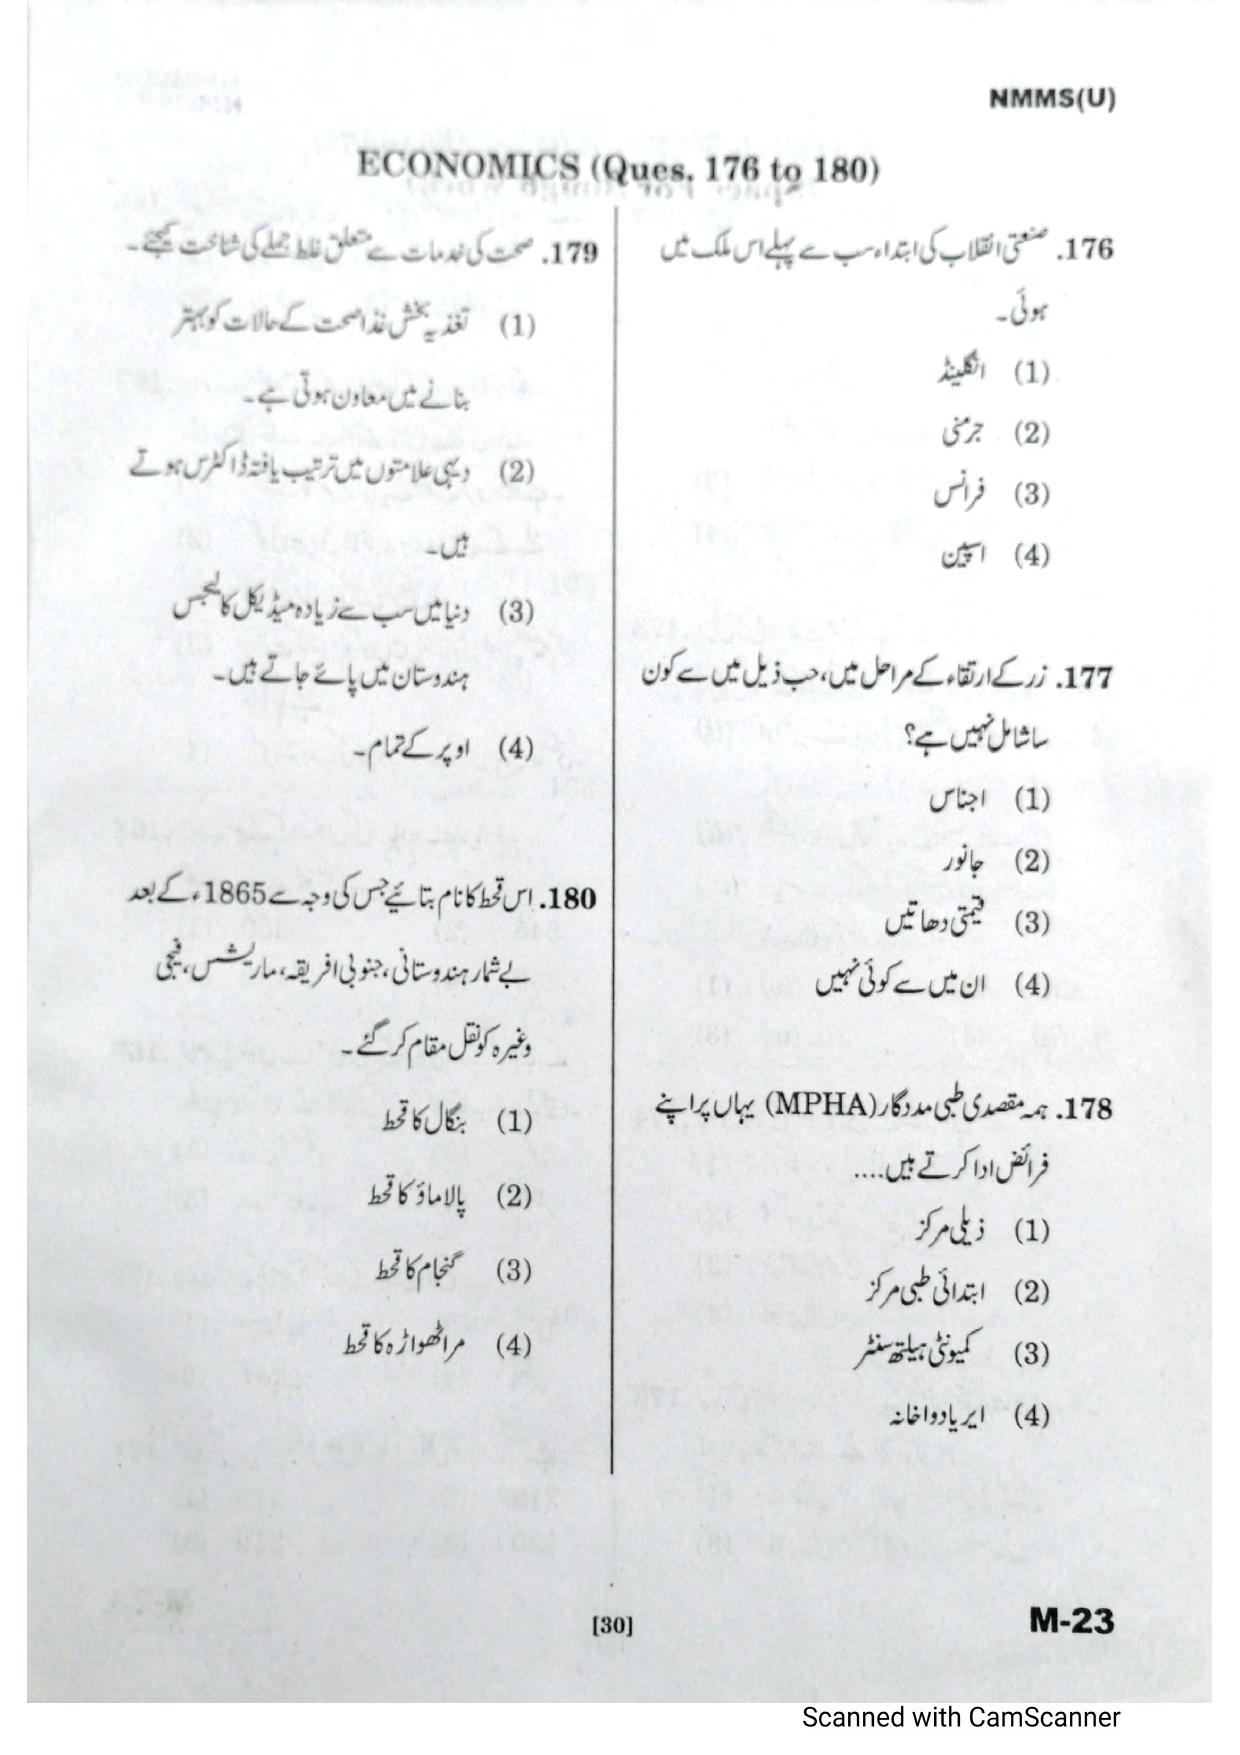 NMMS(U)
ECONOMICS (Ques. 176 to 180)
176. صنعتی انقلاب کی ابتداء سب سے پہلے اس ملک میں
ہوئی۔
(1) انگلینڈ
(2) جرمنی
(3) فرانس
(4) اسپین
177. زر کے ارتقاء کے مراحل میں، حسب ذیل میں سے کون
سا شامل نہیں ہے؟
(1) اجناس
(2) جانور
(3) قیمتی دھاتیں
(4) ان میں سے کوئی نہیں
178. ہمہ مقصدی طبی مددگار (MPHA) یہاں پر اپنے
فرائض ادا کرتے ہیں....
(1) ذیلی مرکز
(2) ابتدائی طبی مرکز
(3) کمیونٹی ہیلتھ سنٹر
(4) ایریا دواخانہ
179. صحت کی خدمات سے متعلق غلط جملے کی شناخت کیجئے۔
(1) تغذیہ بخش غذا صحت کے حالات کو بہتر
بنانے میں معاون ہوتی ہے۔
(2) دیہی علامتوں میں ترتیب یافتہ ڈاکٹرس ہوتے
ہیں۔
(3) دنیا میں سب سے زیادہ میڈیکل کالجس
ہندوستان میں پائے جاتے ہیں۔
(4) اوپر کے تمام۔
180. اس قحط کا نام بتائیے جس کی وجہ سے 1865ء کے بعد
بے شمار ہندوستانی، جنوبی افریقہ، ماریشس، فیجی
وغیرہ کو نقل مقام کر گئے۔
(1) بنگال کا قحط
(2) پالاماؤ کا قحط
(3) گنجام کا قحط
(4) مراٹھواڑہ کا قحط
[30]
M-23
Scanned with CamScanner